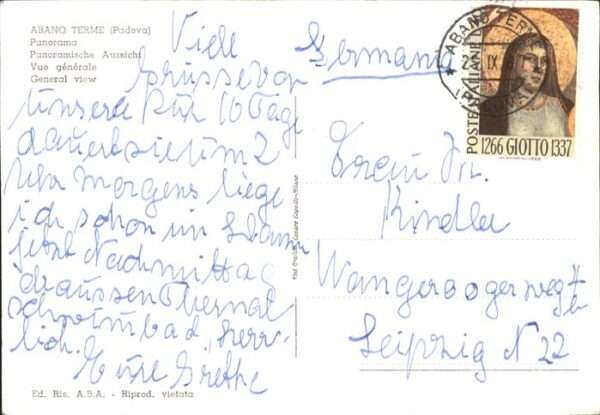 ABANO TERME (Padova)
Panorama
Panoramische Aussicht
Vue générale
General view
Viele
Grüsse von
unsere Kur 10 Tage
dauert sie um 2
Uhr Morgens liege
ich schon im
jetzt Nachmittag
draussen Thermal
schwimbad, herr-
lich.
Eure Grethe
Ed. Ris. A.B.A. - Riprod. vietata
Germania
ABANO TERME
IX
POSTE ITALIANE
1266 GIOTTO 1337
Frau
Kindler
Wangerooger weg
Leipzig N 22